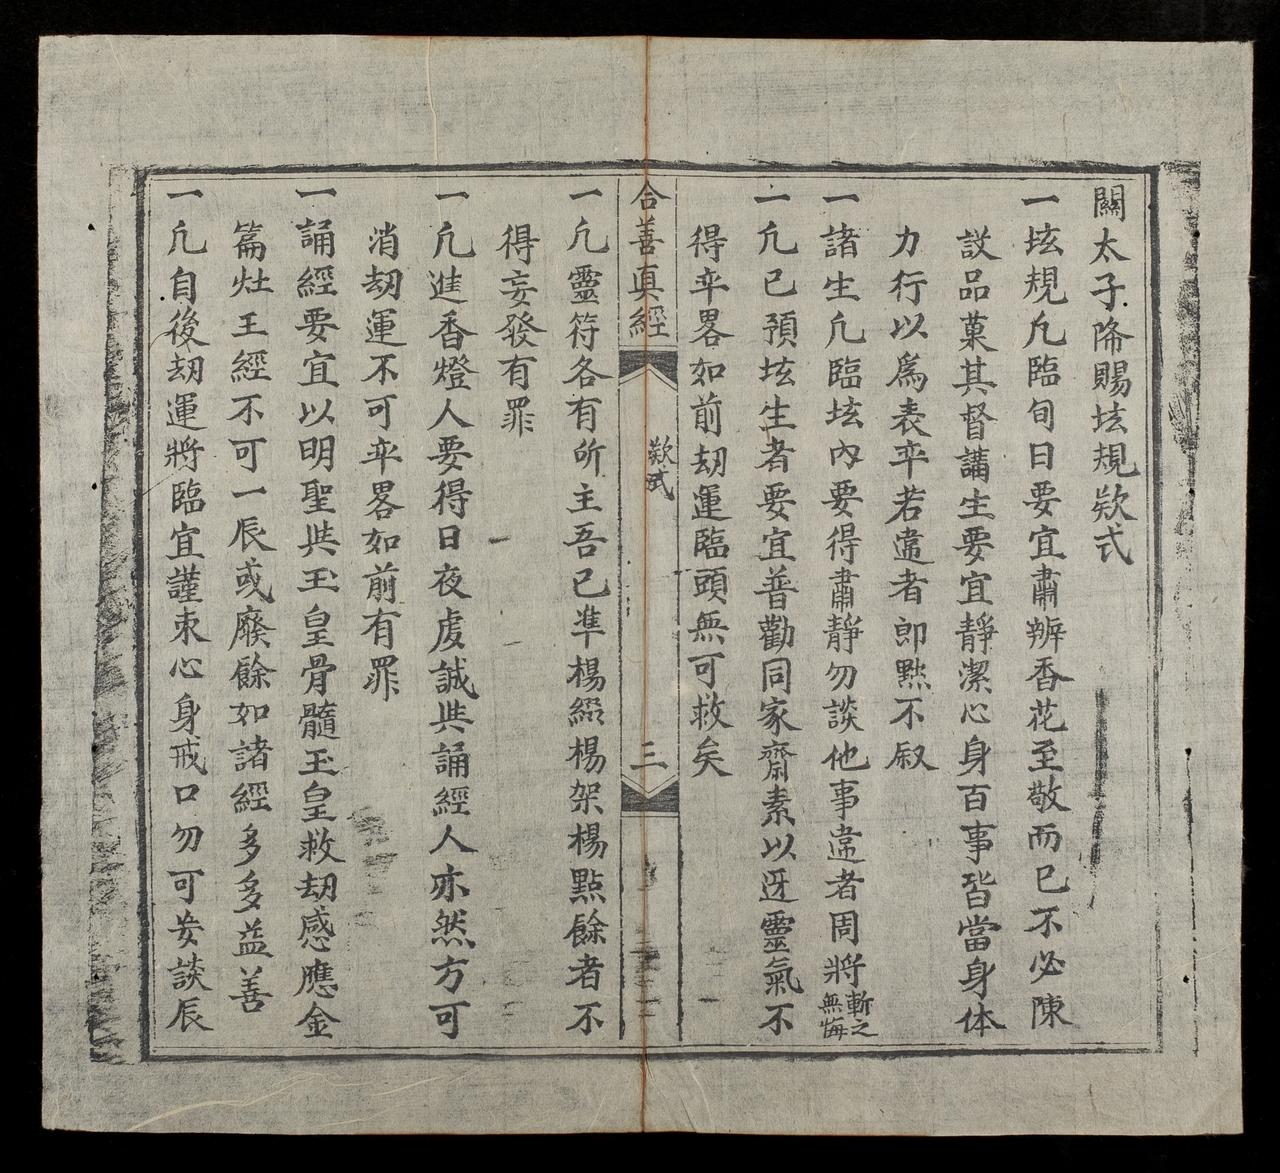 關太子降賜坛規欵式
一坛規凢臨旬日要宜肅辦香花至敬而已不必陳
設品菓其督講生要宜靜潔心身百事皆當身体
力行以爲表率若違者即㸃不叙
一諸生凢臨坛内要得肅靜勿談他事違者周將斬之無悔
一凢已預坛生者要宜普勸同家齋素以迓靈氣不
得率畧如前刼運臨頭無可救矣
合善真經
欵式
三
一凢靈符各有所主吾已準楊緞楊架楊㸃餘者不
得妄發有罪
一凢進香燈人要得日夜虔誠其誦經人亦然方可
消刼運不可率畧如前有罪
一誦經要宜以明聖其玉皇骨髓玉皇救刼感應金
篇灶王經不可一辰或廢餘如諸經多多益善
一凢自後刼運將臨宜謹束心身戒口勿可妄談辰